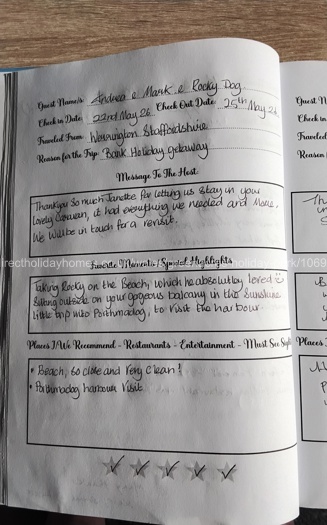 Guest Name/s: Andrea & Mark & Rocky Dog.
Check in Date: 22nd May 26 Check Out Date: 25th May 26
Traveled From: Werrington Staffordshire
Reason for the Trip: Bank Holiday getaway
Message To The Host
Thankyou so much Janette for letting us stay in your
lovely Caravan, it had everything we needed and More.
We will be in touch for a revisit.
Favorite Moments / Special Highlights
Taking Rocky on the Beach, which he absolutley loved
Sitting outside on your gorgeous balcony in the Sunshine
Little trip into Porthmadog, to visit the harbour.
Places I/We Recommend - Restaurants - Entertainment - Must See
• Beach, so close and Very Clean!
• Porthmadog harbour Visit
Guest N
Check in
Traveled
Reason
Places I